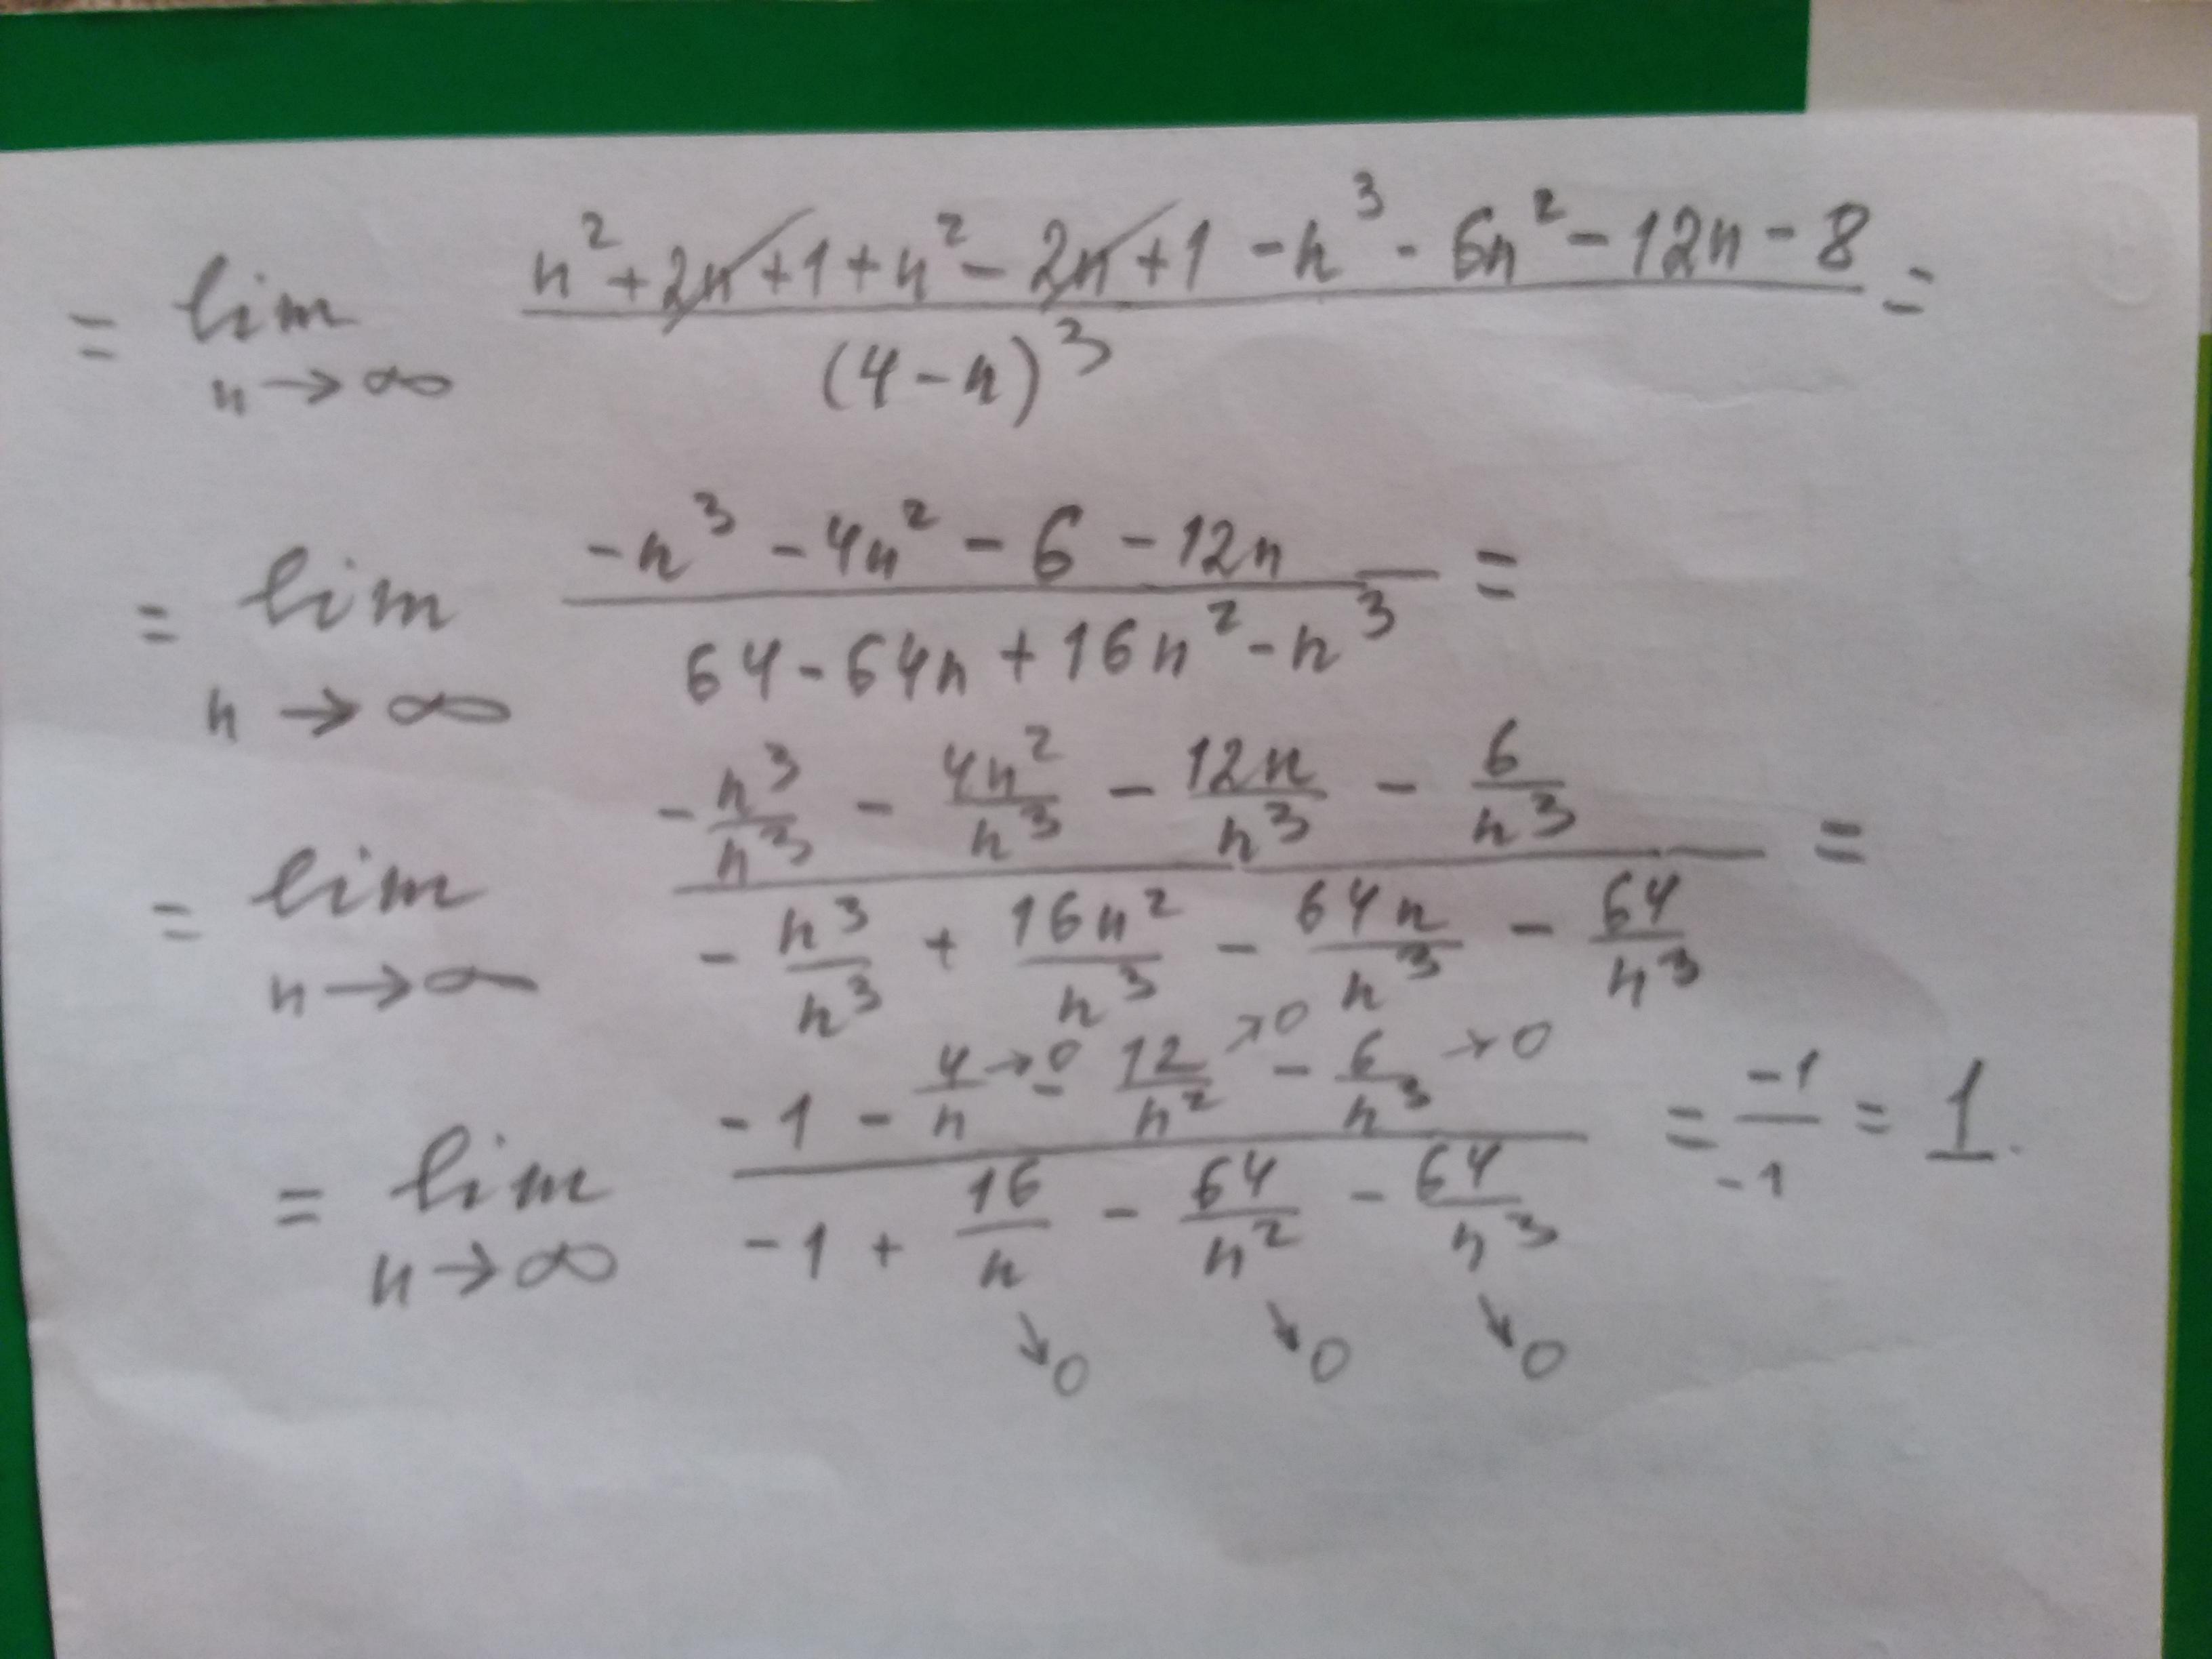 = lim n→∞ (n² + 2n + 1 + n² − 2n + 1 − n³ − 6n² − 12n − 8) / (4 − n)³ =
= lim n→∞ (−n³ − 4n² − 6 − 12n) / (64 − 64n + 16n² − n³) =
= lim n→∞ (−n³/n³ − 4n²/n³ − 12n/n³ − 6/n³) / (−n³/n³ + 16n²/n³ − 64n/n³ − 64/n³) =
= lim n→∞ (−1 − 4/n→0 − 12/n²→0 − 6/n³→0) / (−1 + 16/n→0 − 64/n²→0 − 64/n³→0) = −1/−1 = 1.